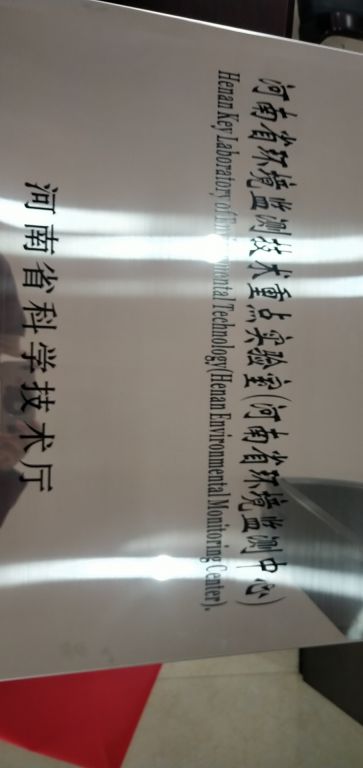 河南省环境监测技术重点实验室(河南省环境监测中心)
Henan Key Laboratory of Environmental Technology(Henan Environmental Monitoring Center).
河南省科学技术厅